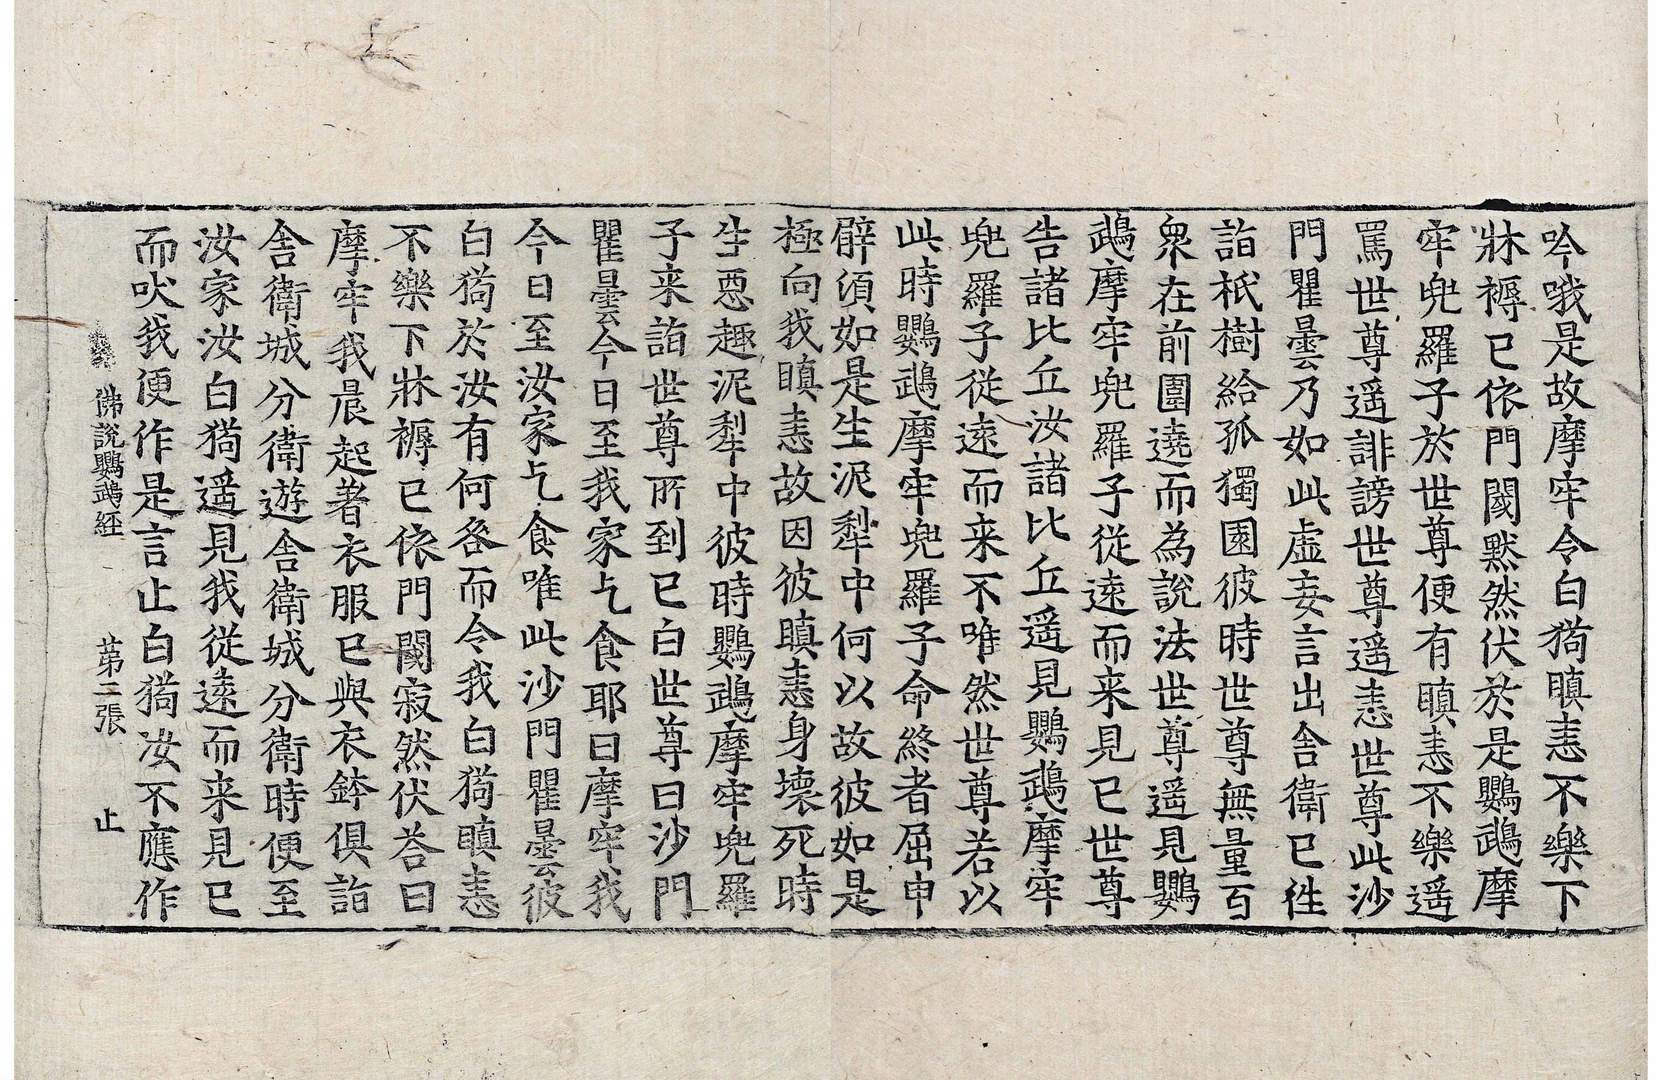 吟哦是故摩牢令白猗瞋恚不樂下
牀褥已依門閾默然伏於是鸚鵡摩
牢兜羅子於世尊便有瞋恚不樂遥
罵世尊遥誹謗世尊遥恚世尊此沙
門瞿曇乃如此虛妄言出舍衛已徃
詣祇樹給孤獨園彼時世尊無量百
衆在前圍遶而為說法世尊遥見鸚
鵡摩牢兜羅子從遠而来見已世尊
告諸比丘汝諸比丘遥見鸚鵡摩牢
兜羅子從遠而来不唯然世尊若以
此時鸚鵡摩牢兜羅子命終者屈申
臂湏如是生泥犁中何以故彼如是
極向我瞋恚故因彼瞋恚身壞死時
生惡趣泥犁中彼時鸚鵡摩牢兜羅
子来詣世尊所到已白世尊曰沙門
瞿曇今日至我家乞食耶曰摩牢我
今日至汝家乞食唯此沙門瞿曇彼
白猗於汝有何咎而令我白猗瞋恚
不樂下牀褥已依門閾寂然伏荅曰
摩牢我晨起著衣服已與衣鉢俱詣
舍衛城分衛遊舍衛城分衛時便至
汝家汝白猗遥見我從遠而来見已
而吠我便作是言止白猗汝不應作
佛說鸚鵡經 第二張 止